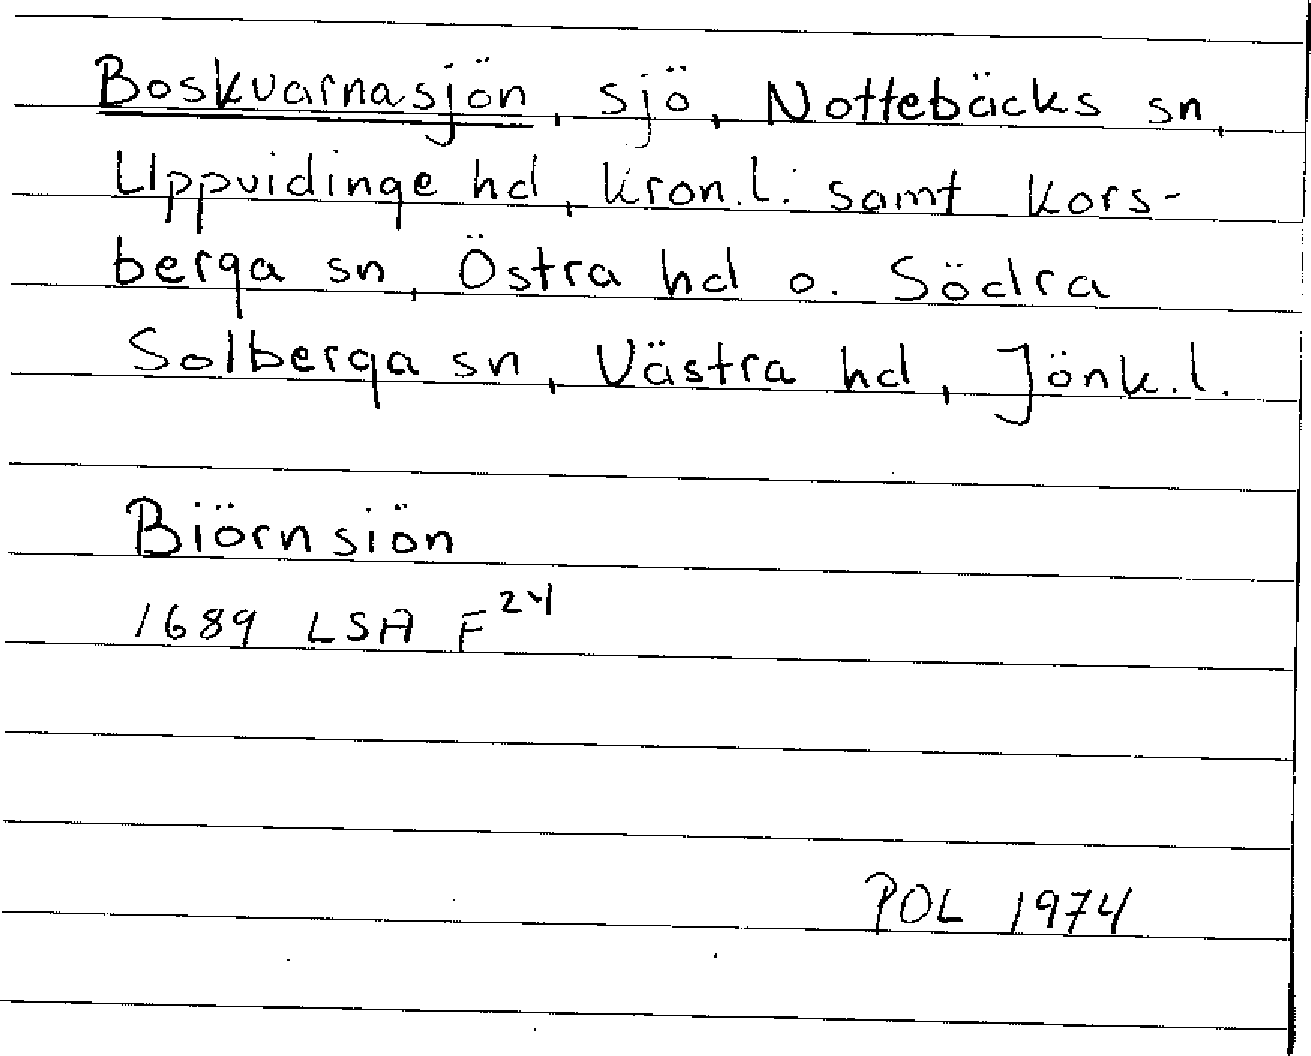 Boskvarnasjön, sjö, Nottebäcks sn,
Uppvidinge hd, Kron.l. samt Kors-
berga sn, Östra hd o. Södra
Solberga sn, Västra hd, Jönk.l.
Biörnsiön
1689 LSA F²⁴
POL 1974